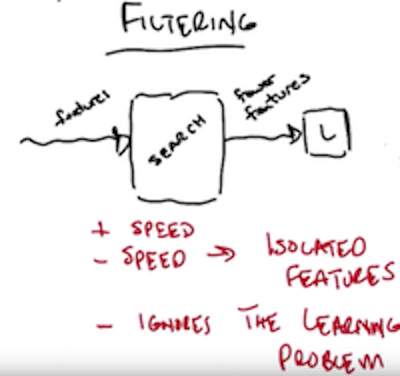 FILTERING
features
SEARCH
fewer
features
L
+ SPEED
- SPEED → ISOLATED
FEATURES
- IGNORES THE LEARNING
PROBLEM